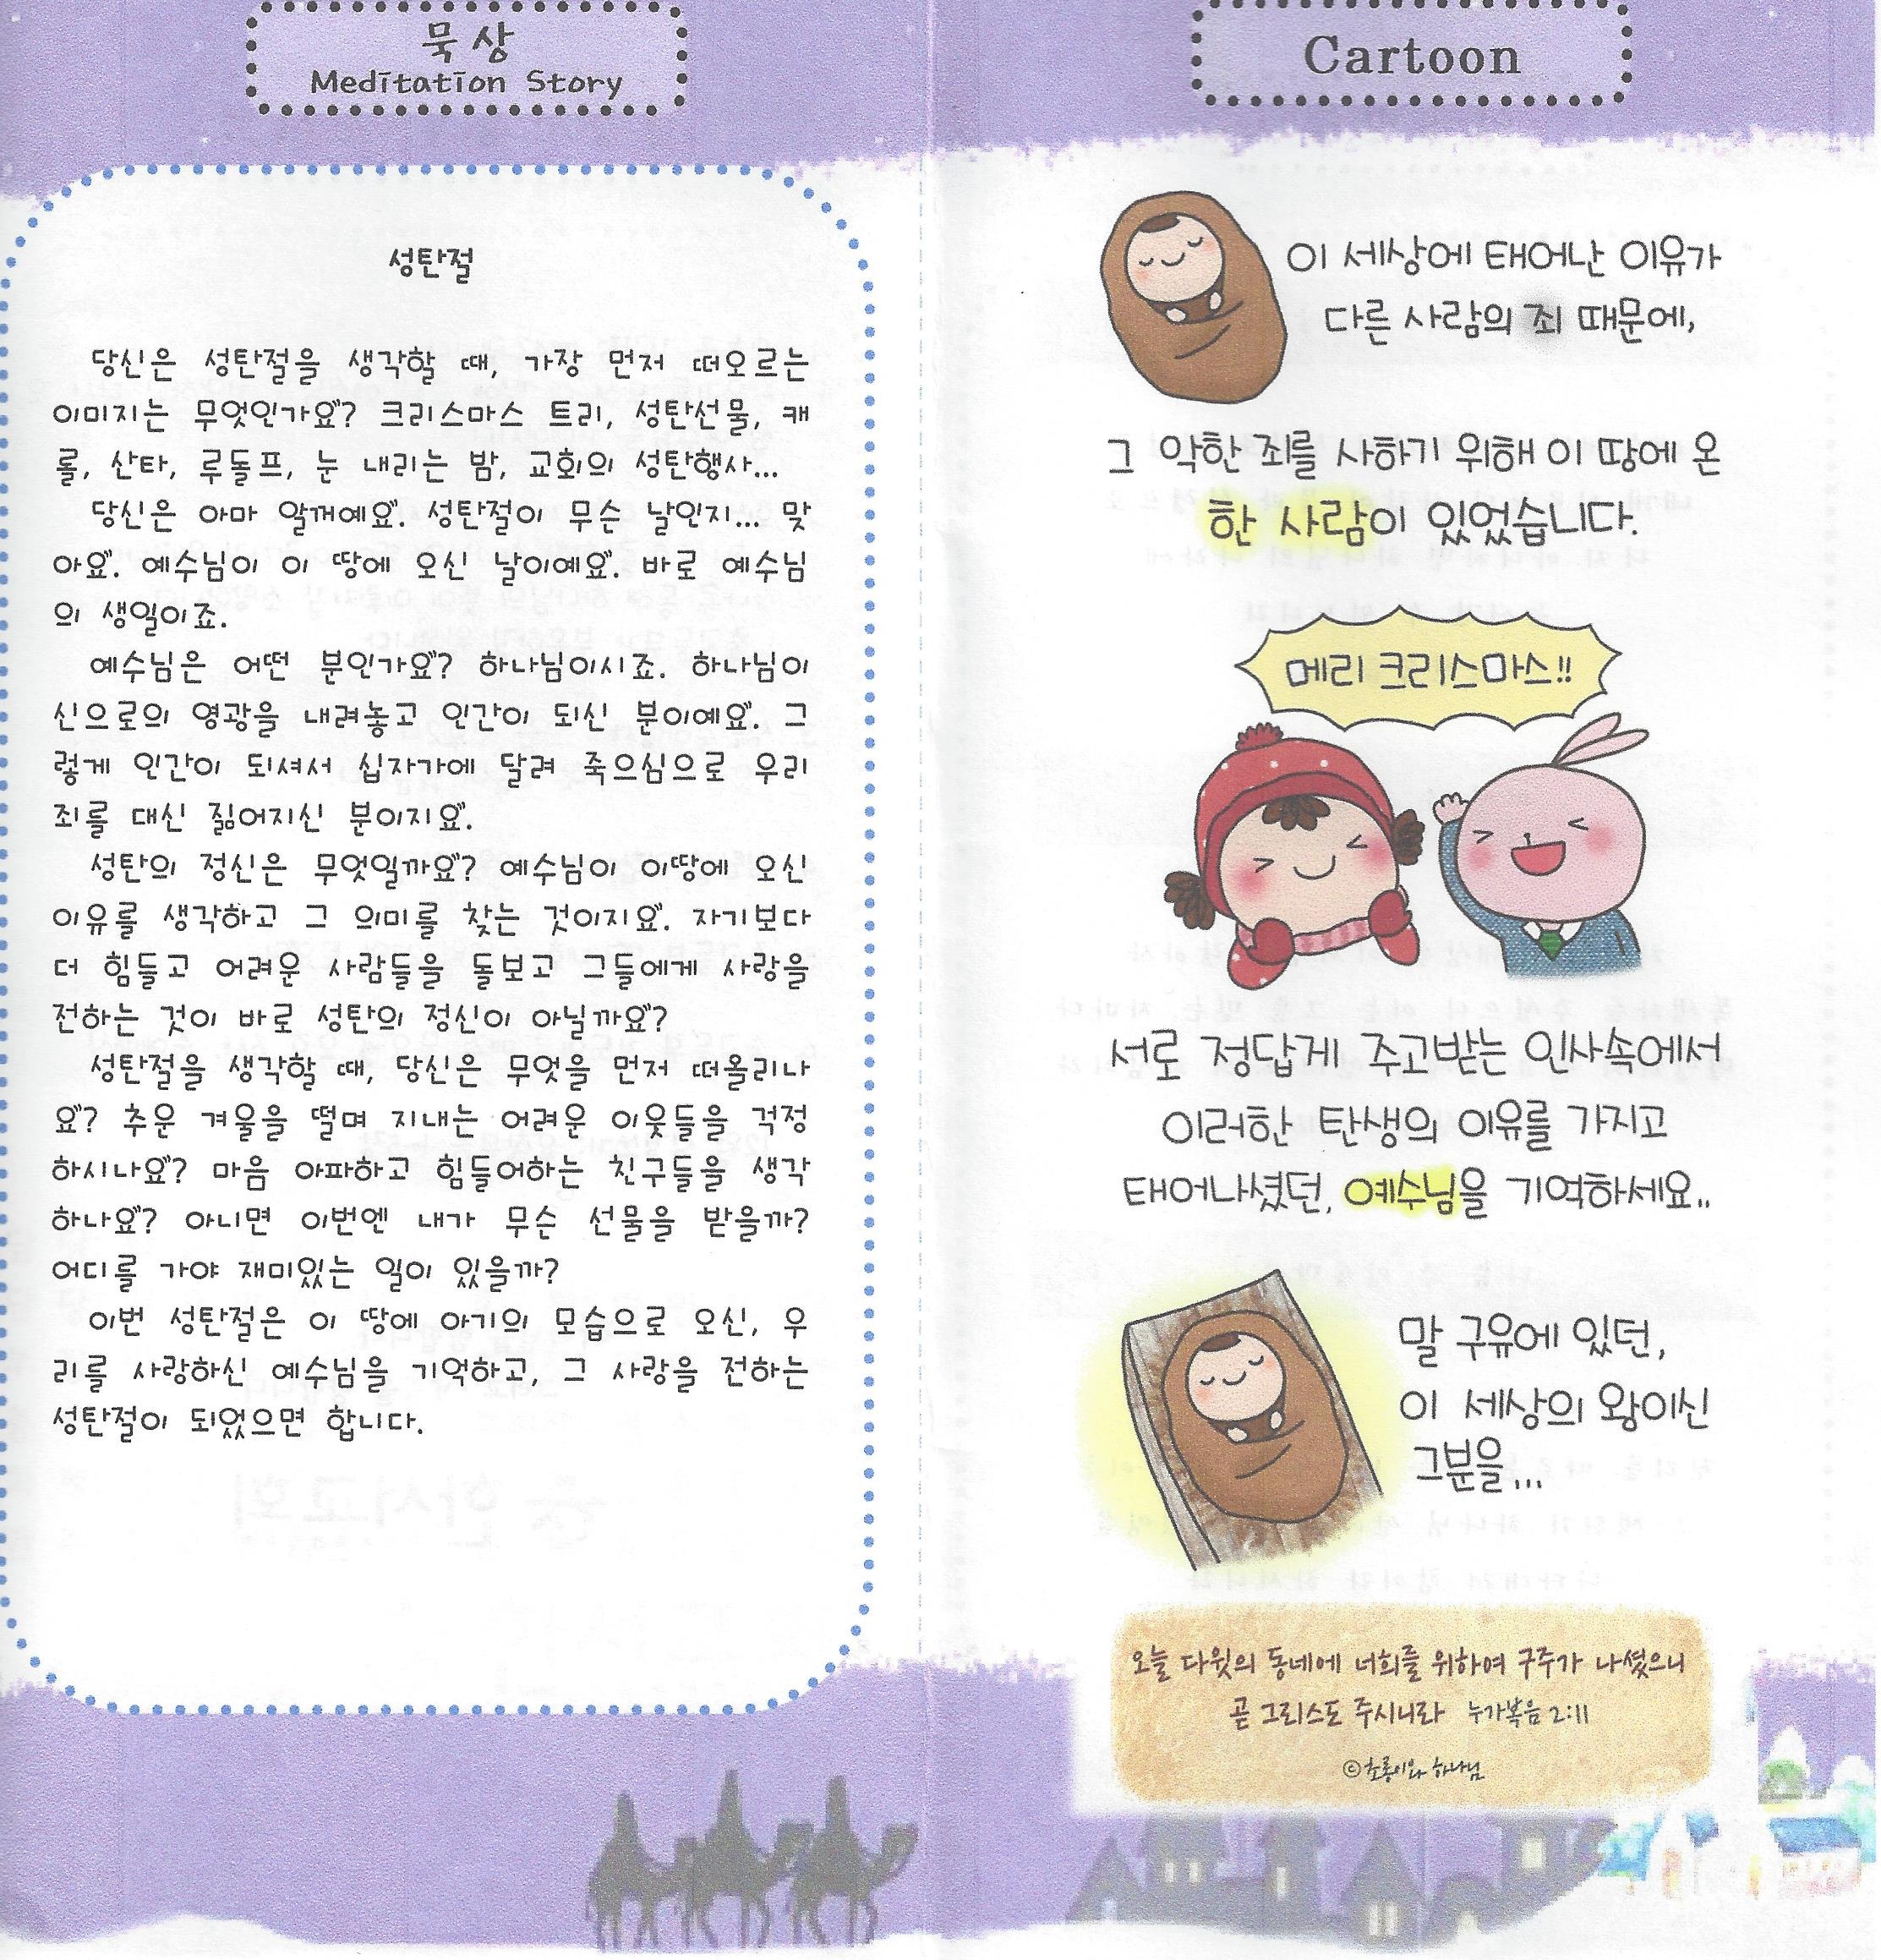 묵상
Meditation Story
성탄절
당신은 성탄절을 생각할 때, 가장 먼저 떠오르는
이미지는 무엇인가요? 크리스마스 트리, 성탄선물, 캐
롤, 산타, 루돌프, 눈 내리는 밤, 교회의 성탄행사...
당신은 아마 알꺼예요. 성탄절이 무슨 날인지... 맞
아요. 예수님이 이 땅에 오신 날이예요. 바로 예수님
의 생일이죠.
예수님은 어떤 분인가요? 하나님이시죠. 하나님이
신으로의 영광을 내려놓고 인간이 되신 분이예요. 그
렇게 인간이 되셔서 십자가에 달려 죽으심으로 우리
죄를 대신 짊어지신 분이지요.
성탄의 정신은 무엇일까요? 예수님이 이땅에 오신
이유를 생각하고 그 의미를 찾는 것이지요. 자기보다
더 힘들고 어려운 사람들을 돌보고 그들에게 사랑을
전하는 것이 바로 성탄의 정신이 아닐까요?
성탄절을 생각할 때, 당신은 무엇을 먼저 떠올리나
요? 추운 겨울을 떨며 지내는 어려운 이웃들을 걱정
하시나요? 마음 아파하고 힘들어하는 친구들을 생각
하나요? 아니면 이번엔 내가 무슨 선물을 받을까?
어디를 가야 재미있는 일이 있을까?
이번 성탄절은 이 땅에 아기의 모습으로 오신, 우
리를 사랑하신 예수님을 기억하고, 그 사랑을 전하는
성탄절이 되었으면 합니다.
Cartoon
이 세상에 태어난 이유가
다른 사람의 죄 때문에,
그 악한 죄를 사하기 위해 이 땅에 온
한 사람이 있었습니다.
메리 크리스마스!!
서로 정답게 주고받는 인사속에서
이러한 탄생의 이유를 가지고
태어나셨던, 예수님을 기억하세요..
말 구유에 있던,
이 세상의 왕이신
그분을...
오늘 다윗의 동네에 너희를 위하여 구주가 나셨으니
곧 그리스도 주시니라 누가복음 2:11
©초롱이와 하나님